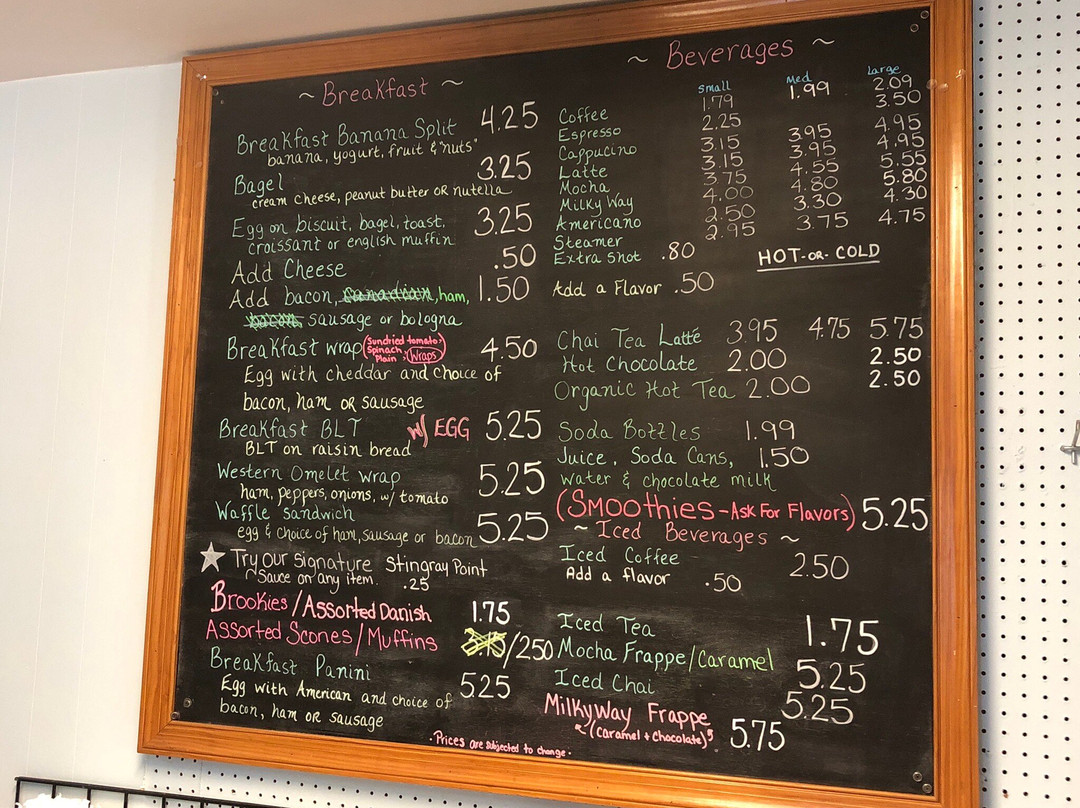 ~ Breakfast ~
Breakfast Banana Split 4.25
banana, yogurt, fruit & "nuts"
Bagel 3.25
cream cheese, peanut butter OR nutella
Egg on biscuit, bagel, toast, 3.25
croissant or english muffin
Add Cheese .50
Add bacon, ham, 1.50
sausage or bologna
Breakfast wrap (Sundried tomato, Spinach Plain Wraps) 4.50
Egg with cheddar and choice of
bacon, ham OR sausage
Breakfast BLT w/ EGG 5.25
BLT on raisin bread
Western Omelet wrap 5.25
ham, peppers, onions, w/ tomato
Waffle Sandwich 5.25
egg & choice of ham, sausage or bacon
Try our signature Stingray Point
~Sauce on any item. .25
Brookies/Assorted Danish 1.75
Assorted Scones/Muffins /250
Breakfast Panini 525
Egg with American and choice of
bacon, ham OR sausage
~ Beverages ~
Small Med Large
Coffee 1.79 1.99 2.09
Espresso 2.25 3.50
Cappucino 3.15 3.95 4.95
Latte 3.15 3.95 4.95
Mocha 3.75 4.55 5.55
Milky Way 4.00 4.80 5.80
Americano 2.50 3.30 4.30
Steamer 2.95 3.75 4.75
Extra Shot .80
HOT-OR-COLD
Add a Flavor .50
Chai Tea Latte 3.95 4.75 5.75
Hot Chocolate 2.00 2.50
Organic Hot Tea 2.00 2.50
Soda Bottles 1.99
Juice, Soda Cans, 1.50
water & chocolate milk
(Smoothies-Ask For Flavors) 5.25
~ Iced Beverages ~
Iced Coffee 2.50
Add a flavor .50
Iced Tea 1.75
Mocha Frappe/Caramel 5.25
Iced Chai 5.25
MilkyWay Frappe 5.75
(Caramel + Chocolate)
·Prices are subjected to change·